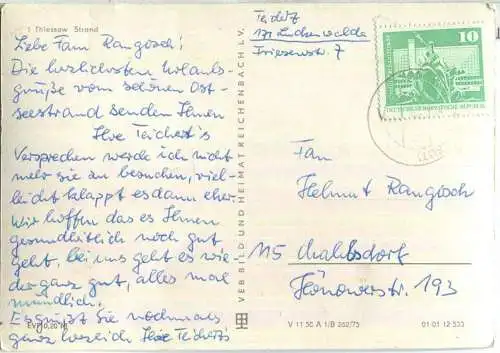 1 Thiessow Strand
Liebe Fam Rangosch!
Die herzlichsten Urlaubs-
grüße vom schönen Ost-
seestrand senden Ihnen
Ihre Teichert's
Versprechen werde ich nicht
mehr sie zu besuchen, viel-
leicht klappt es dann eher.
Wir hoffen das es Ihnen
gesundheitlich noch gut
geht, bei uns geht es wie-
der ganz gut, alles mal
mündlich.
Es grüßt Sie nochmals
ganz herzlich Ihre Teichert's
EVP 0,20 M
VEB BILD UND HEIMAT REICHENBACH I. V.
171 Luckenwalde
Friesenstr. 7
10
DEUTSCHE DEMOKRATISCHE REPUBLIK
Fam
Helmut Rangosch
115 Mahlsdorf
Hönowerstr. 193
V 11 50 A 1/B 362/75
01 01 12 533